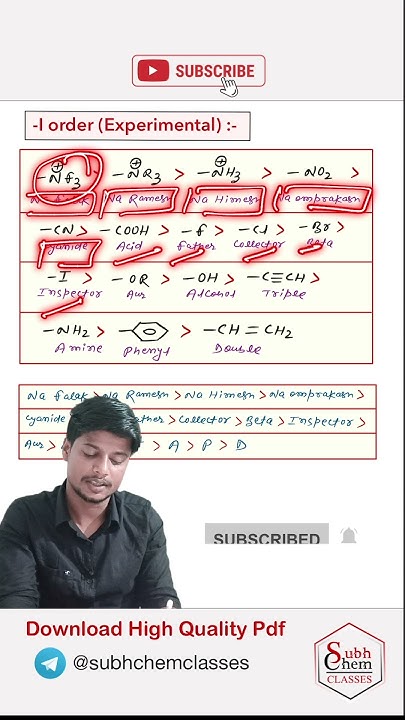 SUBSCRIBE
-I order (Experimental) :-
-N⊕F3 > -N⊕R3 > -N⊕H3 > -NO2 >
Na Ramesh Na Himesh Na omprakash
-CN > -COOH > -F > -Cl > -Br >
Cyanide Acid Father Collector Beta
-I > -OR > -OH > -C≡CH >
Inspector Aur Alcohol Triple
-NH2 > > -CH = CH2
Amine Phenyl Double
Na falak > Na Ramesh > Na Himesh > Na omprakash >
Cyanide ather > Collector > Beta > Inspector >
Aur > > A > P > D
SUBSCRIBED
Download High Quality Pdf
@subhchemclasses
Subh
Chem
CLASSES